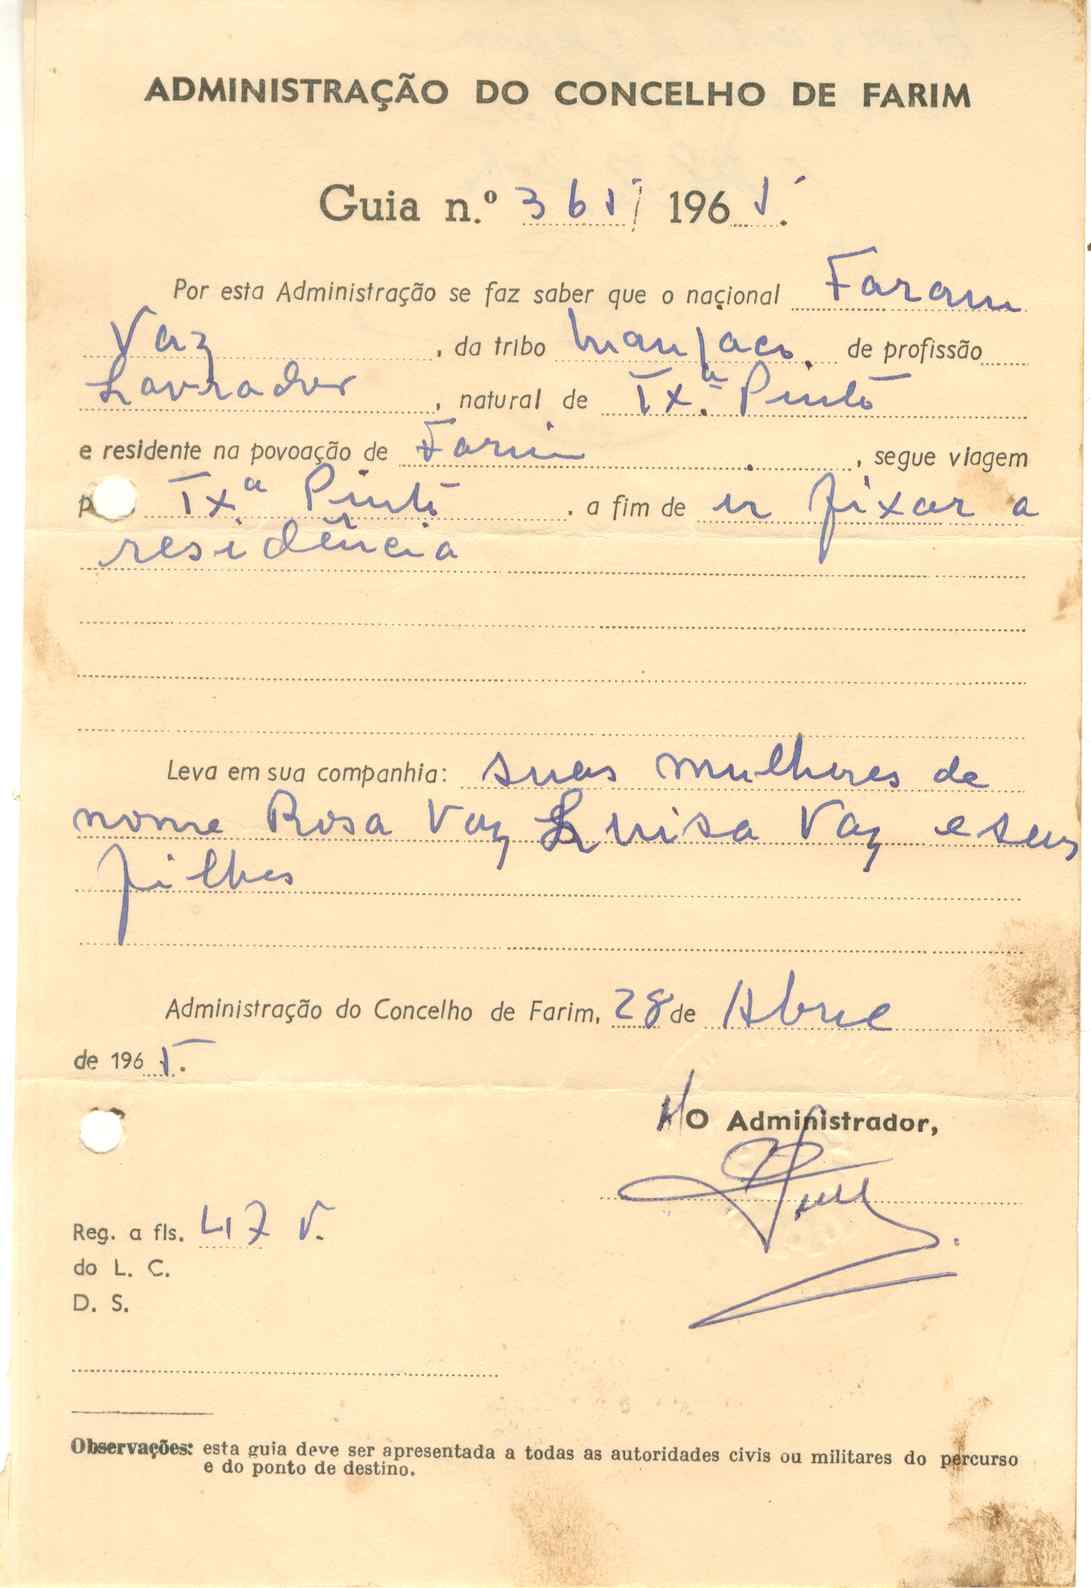 ADMINISTRAÇÃO DO CONCELHO DE FARIM
Guia n.º 365/ 1965.
Por esta Administração se faz saber que o nacional Faram
Vaz, da tribo Manjaco, de profissão
Lavrador, natural de Tx.ª Pinto
e residente na povoação de Farim, segue viagem
p Tx.ª Pinto, a fim de ir fixar a
residência
Leva em sua companhia: suas mulheres de
nome Rosa Vaz Luisa Vaz e seus
filhos
Administração do Concelho de Farim, 28 de Abril
de 1965.
O Administrador,
Reg. a fls. 47 v.
do L. C.
D. S.
Observações: esta guia deve ser apresentada a todas as autoridades civis ou militares do percurso
e do ponto de destino.